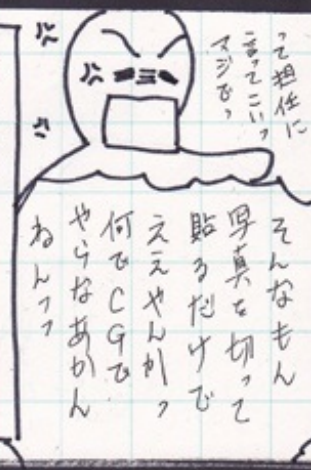 って担任に
言ってこいっ
マジでっ
そんなもん
写真を切って
貼るだけで
ええやんかっ
何でCGで
やらなあかん
ねんっっ